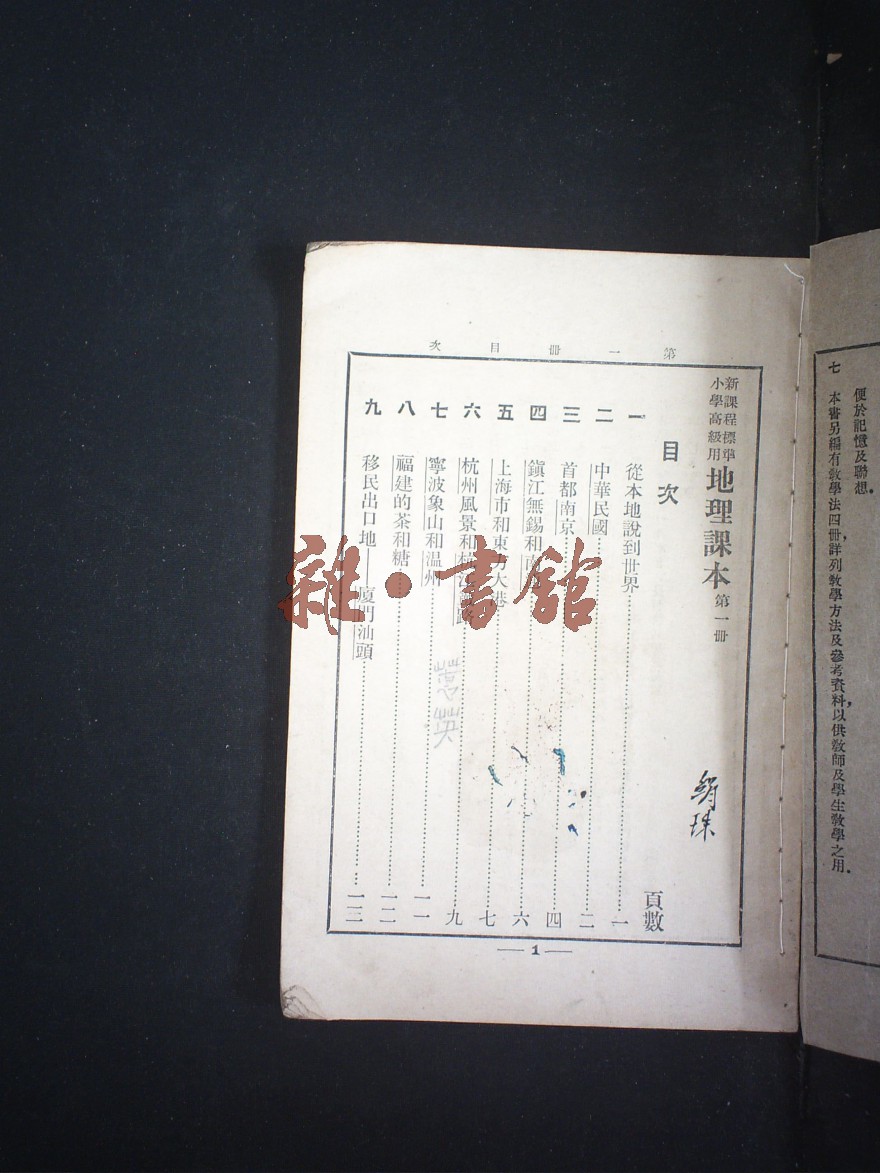 便於記憶及聯想.
七 本書另編有教學法四冊,詳列教學方法及參考資料,以供教師及學生教學之用.
第一冊 目次
新課程標準
小學高級用
地理課本 第一冊
絹珠
目次 頁數
一 從本地說到世界 一
二 中華民國 二
三 首都南京 四
四 鎮江無錫和南 六
五 上海市和東方大港 七
六 杭州風景和杭江鐵路 九
七 寧波象山和温州 一一
八 福建的茶和糖 一二
九 移民出口地——廈門汕頭 一三
英
— 1 —
雜·書館